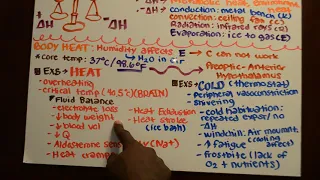 -ΔH
-ΔH
conduction: metal bench (K)
convection: ceiling fan (C)
radiation: infrared rays (R)
Evaporation: ice to gas (E)
BODY HEAT: Humidity affects E
C can not work
core temp: 37°C/98.6°F
H2O in
Preoptic-Anterior
Hypothalamus
EXS → HEAT
- overheating
- critical temp (40.5°C)(BRAIN)
Fluid Balance
- electrolyte loss
- ↓ body weight
- ↓ blood vol
- ↓ Q
- Aldosterone
(Na+)
- Heat cramps
- Heat Exhaustion
- Heat stroke
(ice bath)
EXS → COLD (thermostat)
- peripheral vasoconstriction
- shivering
- cold habituation:
repeated exps/ no
ΔH
- windchill: Air mount,
↑ fatigue (affect)
- frostbite (lack of
O2 + nutrients)